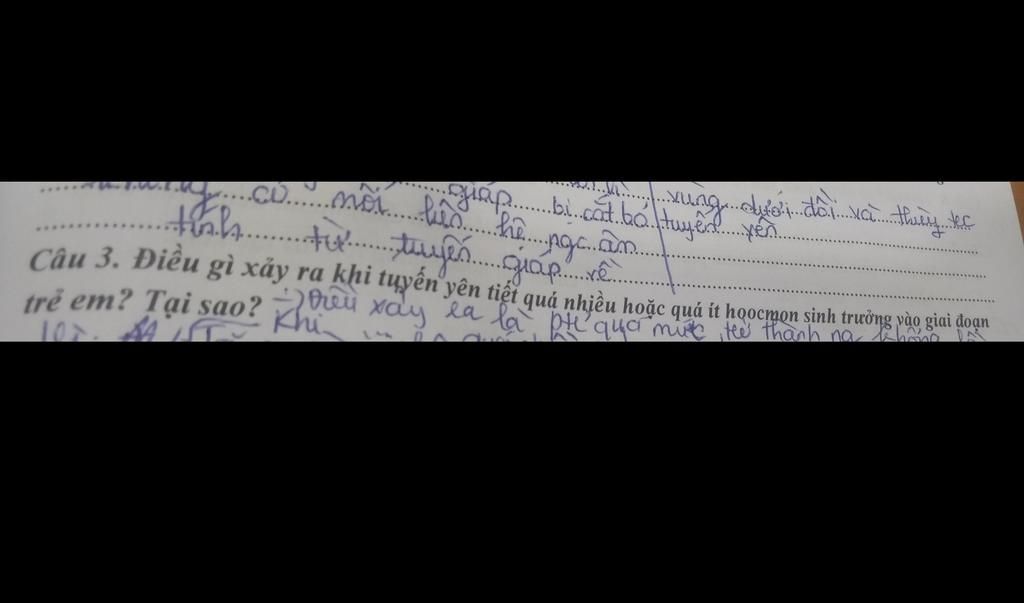 giáp bị cắt bỏ tuyến yên
vùng dưới đồi và thùy
có mối liên hệ ngc âm
tính từ tuyến giáp về
Câu 3. Điều gì xảy ra khi tuyến yên tiết quá nhiều hoặc quá ít hoocmon sinh trưởng vào giai đoạn
trẻ em? Tại sao? Điều xảy ra là ptr quá mức, trở thành ng khổng lồ
Khi